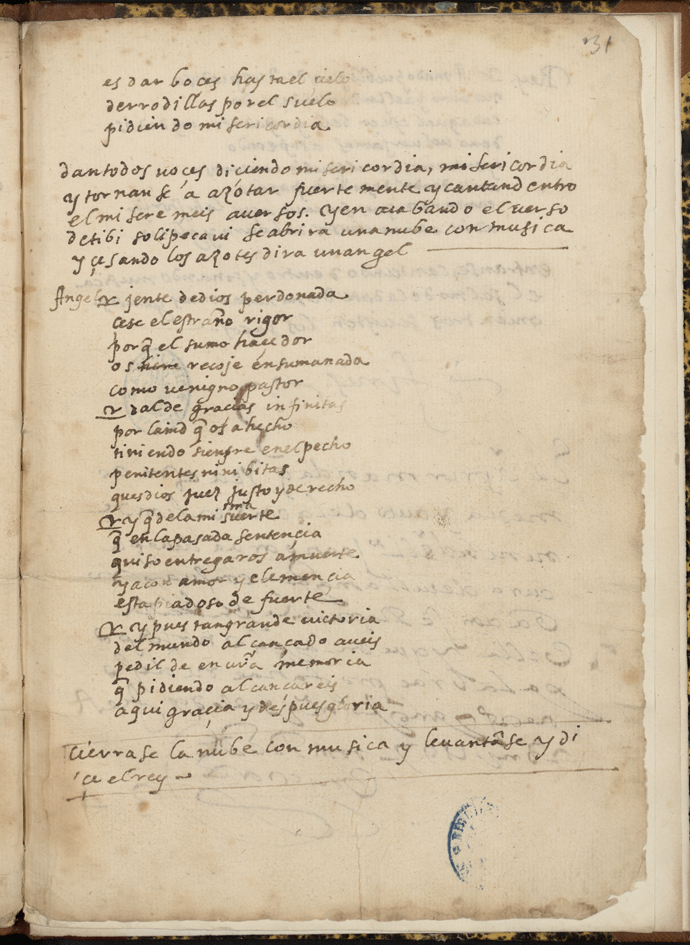 31
es dar boces hastael cielo
derrodillas por el suelo
pidiendo misericordia
dantodos voçes diciendo misericordia, misericordia
y tornanse a azotar fuertemente y cantand entro
el miseremeis aversos. y en acabando el verso
detibi solipecavi se abrira unanube con musica
y çesando los azotes dira unangel
Angel jente dedios perdonada
cese el estraño rigor
porq̃ el sumo haçedor
os recoje ensumanada
como venigno pastor
dalde gracias infinitas
por q̃ os a hecho
tiniendo sienpre enelpecho
penitentes ninibitas
quesdios juez justo y derecho
y q̃ delamisma suerte
q̃ enlapasada sentencia
quiso entregaros amuerte
yacon amor y clemencia
esta piadoso de fuerte
y pues tangrande victoria
del mundo alcançado aveis
pedil de en vr̃a memoria
q̃ pidiendo alcancareis
aqui gracia y despues gloria
cierrase la nube con musica y levantãse y di
ce el rey